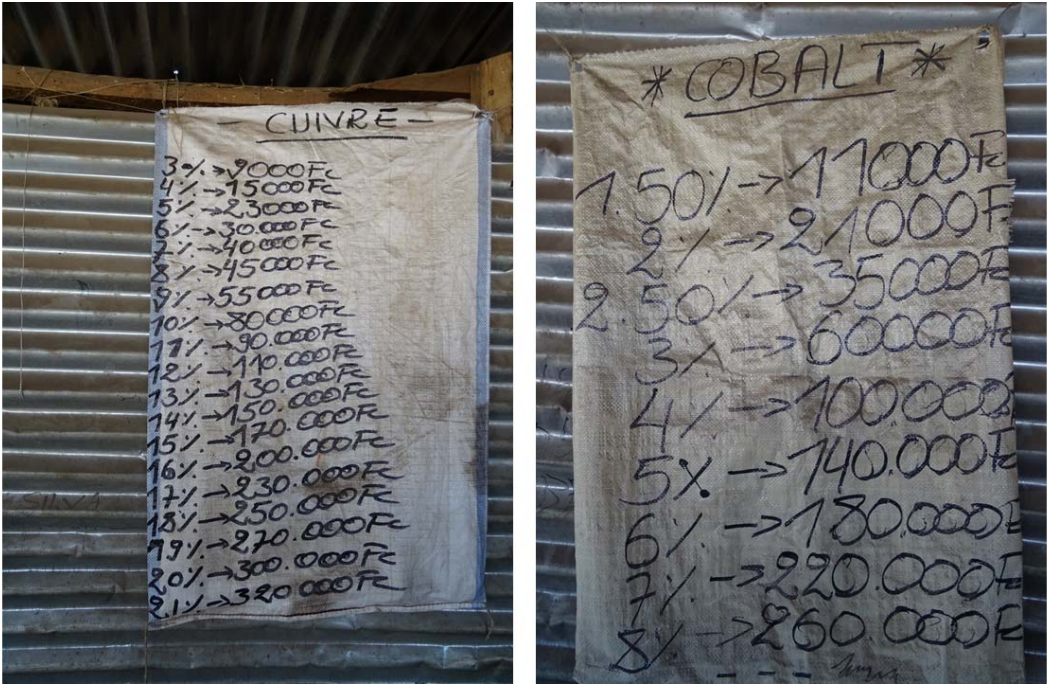 - CUIVRE -
3%→9000Fc
4%→15000Fc
5%→23000Fc
6%→30.000Fc
7%→40000Fc
8%→45000Fc
9%→55000Fc
10%→80000Fc
11%→90.000Fc
12%→110.000Fc
13%→130.000Fc
14%→150.000Fc
15%→170.000Fc
16%→200.000Fc
17%→230.000Fc
18%→250.000Fc
19%→270.000Fc
20%→300.000Fc
21%→320000Fc
* COBALT *
1.50%→11000Fc
2%→21000F
2.50%→35000Fc
3%→60000Fc
4%→100.000
5%→140.000Fc
6%→180.000F
7%→220.000Fc
8%→260.000Fc
- - -